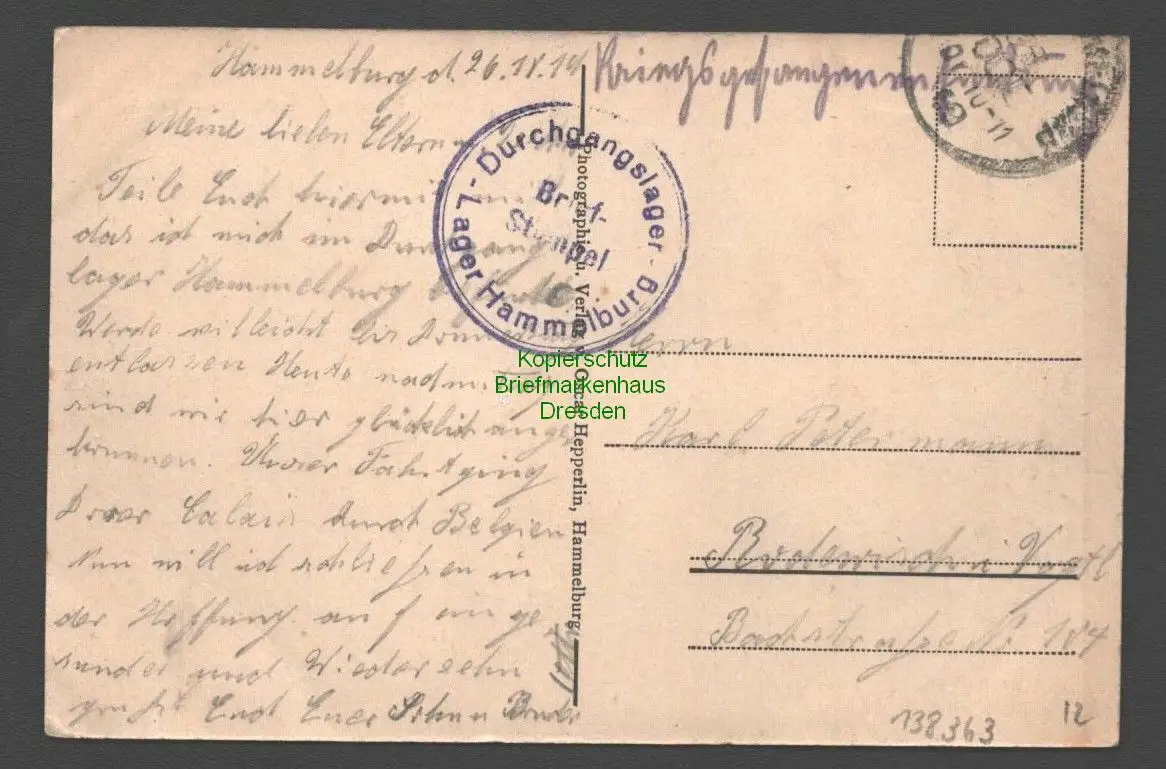 Hammelburg d. 26.IV.19
Kriegsgefangenen
Meine lieben Eltern
Teile Euch hiermit mit
das ich mich im
lager Hammelburg
Werde villeicht bis
entlassen Heute nachmittag
sind wir hier glücklich ange
kommen. Unser Fahrt ging
über Calais durch Belgien
Nun will ich schliessen in
der Hoffnung auf ein ge
sundes und Wiedersehn
grüßt Euch Euer Sohn u Bruder
- Durchgangslager -
Lager Hammelburg
Brief-
Stempel
Photographie u. Verlag v. Oscar Hepperlin, Hammelburg.
Herrn
Karl Petermann
Rodewisch i Vogtl
Bachstraße No 184
10-11
Kopierschutz
Briefmarkenhaus
Dresden
138363
12